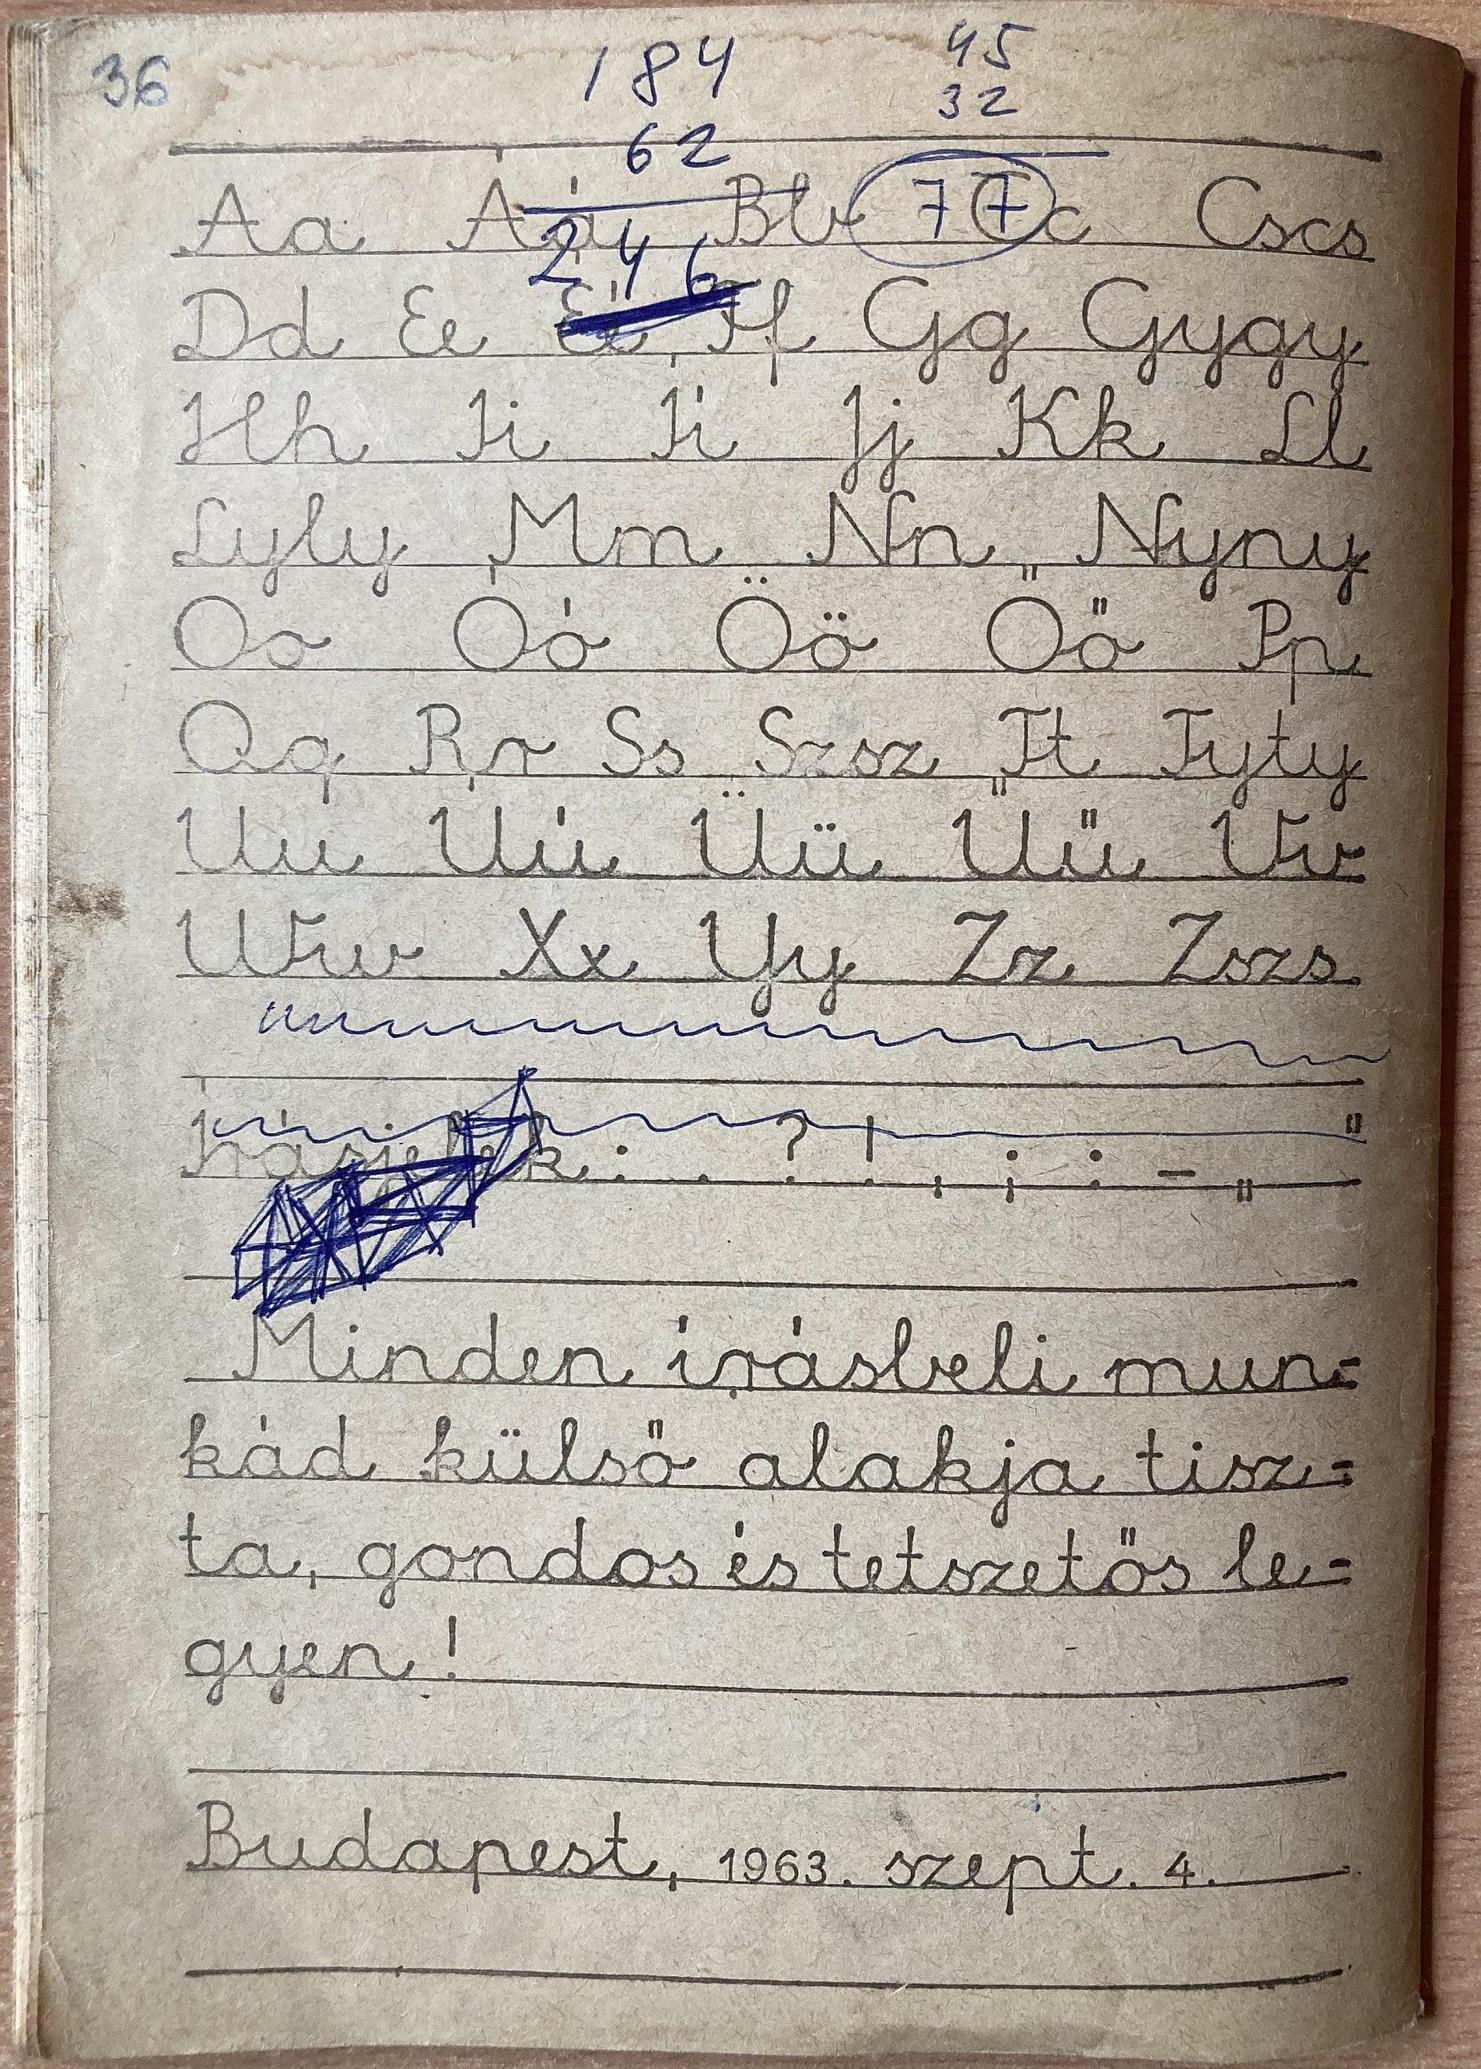 36
184 45
62 32
Aa Áá Bb 77 Cc Cscs
246
Dd Ee Éé Ff Gg Gygy
Hh Ii Íí Jj Kk Ll
Lyly Mm Nn Nyny
Oo Óó Öö Őő Pp
Qq Rr Ss Szsz Tt Tyty
Uu Úú Üü Űű Vv
Ww Xx Yy Zz Zszs
Írásjelek: . ? ! , ; : – „ "
Minden írásbeli mun=
kád külső alakja tisz=
ta, gondos és tetszetős le=
gyen!
Budapest, 1963. szept. 4.